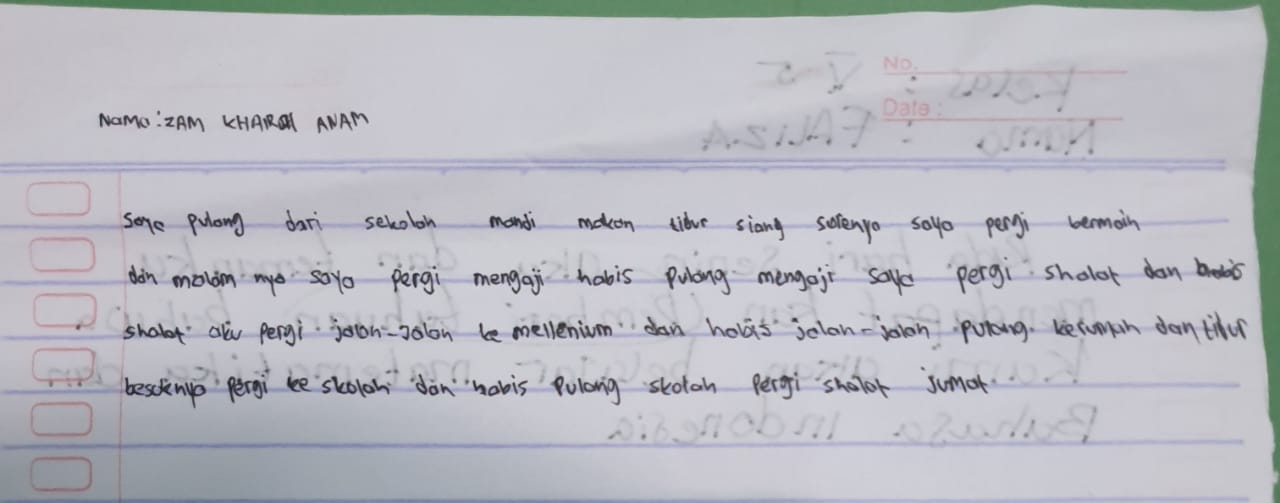 No.
Date :
Nama : ZAM KHAIRUL ANAM
saya pulang dari sekolah mandi makan tidur siang sorenya saya pergi bermain
dan malam nya saya pergi mengaji habis pulang mengaji saya pergi sholat dan habis
shalat aku pergi jalan-jalan ke mellenium dan habis jalan-jalan pulang kerumah dan tidur
besoknya pergi ke skolah dan habis pulang skolah pergi sholat jumat